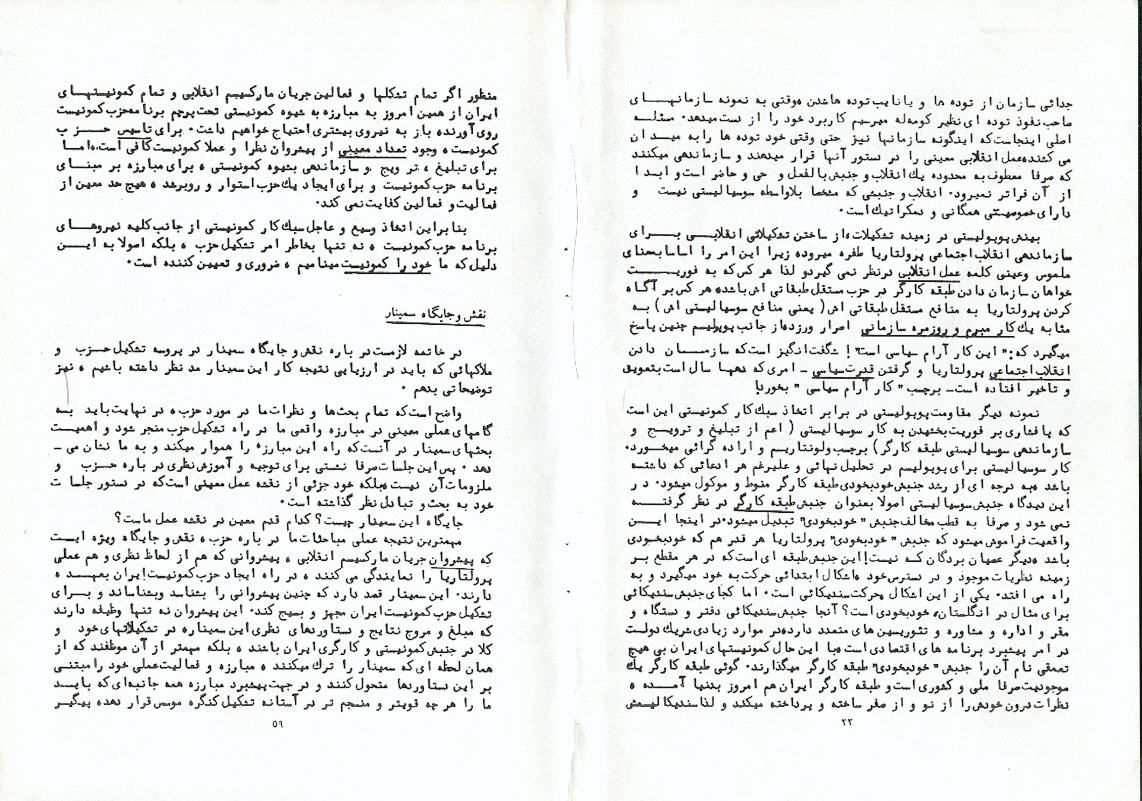 جدائی سازمان از توده ها و یا نایب توده ها شدن ه وقتی به نمونه سازمانهای
صاحب نفوذ توده ای نظیر کومه له میرسیم کاربرد خود را از دست میدهد. مسئله
اصلی اینجاست که اینگونه سازمانها نیز حتی وقتی خود توده ها را به میدان
می کشند ه عمل انقلابی معینی را در دستور آنها قرار میدهند و سازماندهی میکنند
که صرفا معطوف به محدوده یك انقلاب و جنبش بالفعل و حی و حاضر است و ابدا
از آن فراتر نمیرود. انقلاب و جنبشی که مشخصا بلاواسطه سوسیالیستی نیست و
دارای خصوصیتی همگانی و دمکراتیك است.
بینش پوپولیستی در زمینه تشکیلات ه از ساختن تشکیلاتی انقلابی برای
سازماندهی انقلاب اجتماعی پرولتاریا طفره میرود ه زیرا این امر را اساسا بمعنای
ملموس وعینی کلمه عمل انقلابی درنظر نمی گیرد و لذا هر کس که به فوریت
خواهان سازمان دادن طبقه کارگر در حزب مستقل طبقاتی اش باشد ه هر کس بر آگاه
کردن پرولتاریا به منافع مستقل طبقاتی اش (یعنی منافع سوسیالیستی اش) به
مثابه یك کار مبرم و روزمره سازمانی اصرار ورزد ه از جانب پوپولیسم چنین پاسخ
میگیرد که: " این کار آرام سیاسی است"! شگفت انگیز است که سازمان دادن
انقلاب اجتماعی پرولتاریا و گرفتن قدرت سیاسی ـ امری که دهها سال است بتعویق
و تاخیر افتاده است ـ برچسب " کار آرام سیاسی " بخورد!
نمونه دیگر مقاومت پوپولیستی در برابر اتخاذ سبك کار کمونیستی این است
که پافشاری بر فوریت بخشیدن به کار سوسیالیستی ( اعم از تبلیغ و ترویج و
سازماندهی سوسیالیستی طبقه کارگر) برچسب ولونتاریسم و اراده گرائی میخورد.
کار سوسیالیستی برای پوپولیسم در تحلیل نهائی و علیرغم هر ادعائی که داشته
باشد ه به درجه ای از رشد جنبش خودبخودی طبقه کارگر منوط و موکول میشود. در
این دیدگاه جنبش سوسیالیستی اصولا بعنوان جنبش طبقه کارگر در نظر گرفته
نمی شود و صرفا به قطب مخالف جنبش "خودبخودی" تبدیل میشود. در اینجا این
واقعیت فراموش میشود که جنبش "خودبخودی" پرولتاریا هر قدر هم که خودبخودی
باشد ه دیگر عصیان بردگان که نیست! این جنبش طبقه ای است که در هر مقطع بر
زمینه نظریات موجود و در دسترس خود ه اشکال ابتدائی حرکت به خود میگیرد و به
راه می افتد. یکی از این اشکال ه حرکت سندیکائی است. اما کجای جنبش سندیکائی
برای مثال در انگلستان ه خودبخودی است؟ آنجا جنبش سندیکائی دفتر و دستگاه و
مقر و اداره و مشاوره و تئوریسین های متعدد دارد ه در موارد زیادی شریك دولت
در امر پیشبرد برنامه های اقتصادی است ه با این حال کمونیستهای ایران بی هیچ
تعمقی نام آن را جنبش "خودبخودی" طبقه کارگر میگذارند. گوئی طبقه کارگر یك
موجودیت صرفا ملی و کشوری است و طبقه کارگر ایران هم امروز بدنیا آمده ه
نظرات درون خودش را از نو و از صفر ساخته و پرداخته میکند و لذا سندیکالیسمش
۲۲
منظور اگر تمام تشکلها و فعالین جریان مارکسیسم انقلابی و تمام کمونیستهای
ایران از همین امروز به مبارزه به شیوه کمونیستی تحت پرچم برنامه حزب کمونیست
روی آورند ه باز به نیروی بیشتری احتیاج خواهیم داشت. برای تاسیس حزب
کمونیست ه وجود تعداد معینی از پیشروان نظرا و عملا کمونیست کافی است. ه اما
برای تبلیغ ، ترویج ه و سازماندهی بشیوه کمونیستی ه برای مبارزه بر مبنای
برنامه حزب کمونیست و برای ایجاد یك حزب استوار و روبرشد ه هیچ حد معین از
فعالیت و فعالین کفایت نمی کند.
بنابراین اتخاذ وسیع و عاجل سبك کار کمونیستی از جانب کلیه نیروهای
برنامه حزب کمونیست ه نه تنها بخاطر امر تشکیل حزب ه بلکه اصولا به این
دلیل که ما خود را کمونیست مینامیم ه ضروری و تعیین کننده است.
نقش و جایگاه سمینار
در خاتمه لازمست در باره نقش و جایگاه سمینار در پروسه تشکیل حزب و
ملاکهائی که باید در ارزیابی نتیجه کار این سمینار مد نظر داشته باشیم ه نیز
توضیحاتی بدهم .
واضح است که تمام بحثها و نظرات ما در مورد حزب ه در نهایت باید به
گامهای عملی معینی در مبارزه واقعی ما در راه تشکیل حزب منجر شود و اهمیت
بحثهای سمینار در آنست که راه این مبارزه را هموار میکند و به ما نشان می ـ
دهد . پس این جلسات صرفا نشستی برای توجیه و آموزش نظری در باره حزب و
ملزومات آن نیست ه بلکه خود جزئی از نقشه عمل معینی است که در دستور جلسات
خود به بحث و تبادل نظر گذاشته است.
جایگاه این سمینار چیست؟ کدام قدم معین در نقشه عمل ماست؟
مهمترین نتیجه عملی مباحثات ما در باره حزب ه نقش و جایگاه ویژه ایست
که پیشروان جریان مارکسیسم انقلابی ه پیشروانی که هم از لحاظ نظری و هم عملی
پرولتاریا را نمایندگی می کنند ه در راه ایجاد حزب کمونیست ایران بعهده
دارند. این سمینار قصد دارد که چنین پیشروانی را بشناسد وبشناساند و برای
تشکیل حزب کمونیست ایران مجهز و بسیج کند. این پیشروان نه تنها وظیفه دارند
که مبلغ و مروج نتایج و دستاوردهای نظری این سمینار ه در تشکیلاتهای خود و
کلا در جنبش کمونیستی و کارگری ایران باشند ه بلکه مهمتر از آن موظفند که از
همان لحظه ای که سمینار را ترك میکنند ه مبارزه و فعالیت عملی خود را مبتنی
بر این دستاوردها متحول کنند و در جهت پیشبرد مبارزه همه جانبه ای که باید
ما را هر چه قویتر و منسجم تر در آستانه تشکیل کنگره موسس قرار دهد ه پیگیر
۵۹